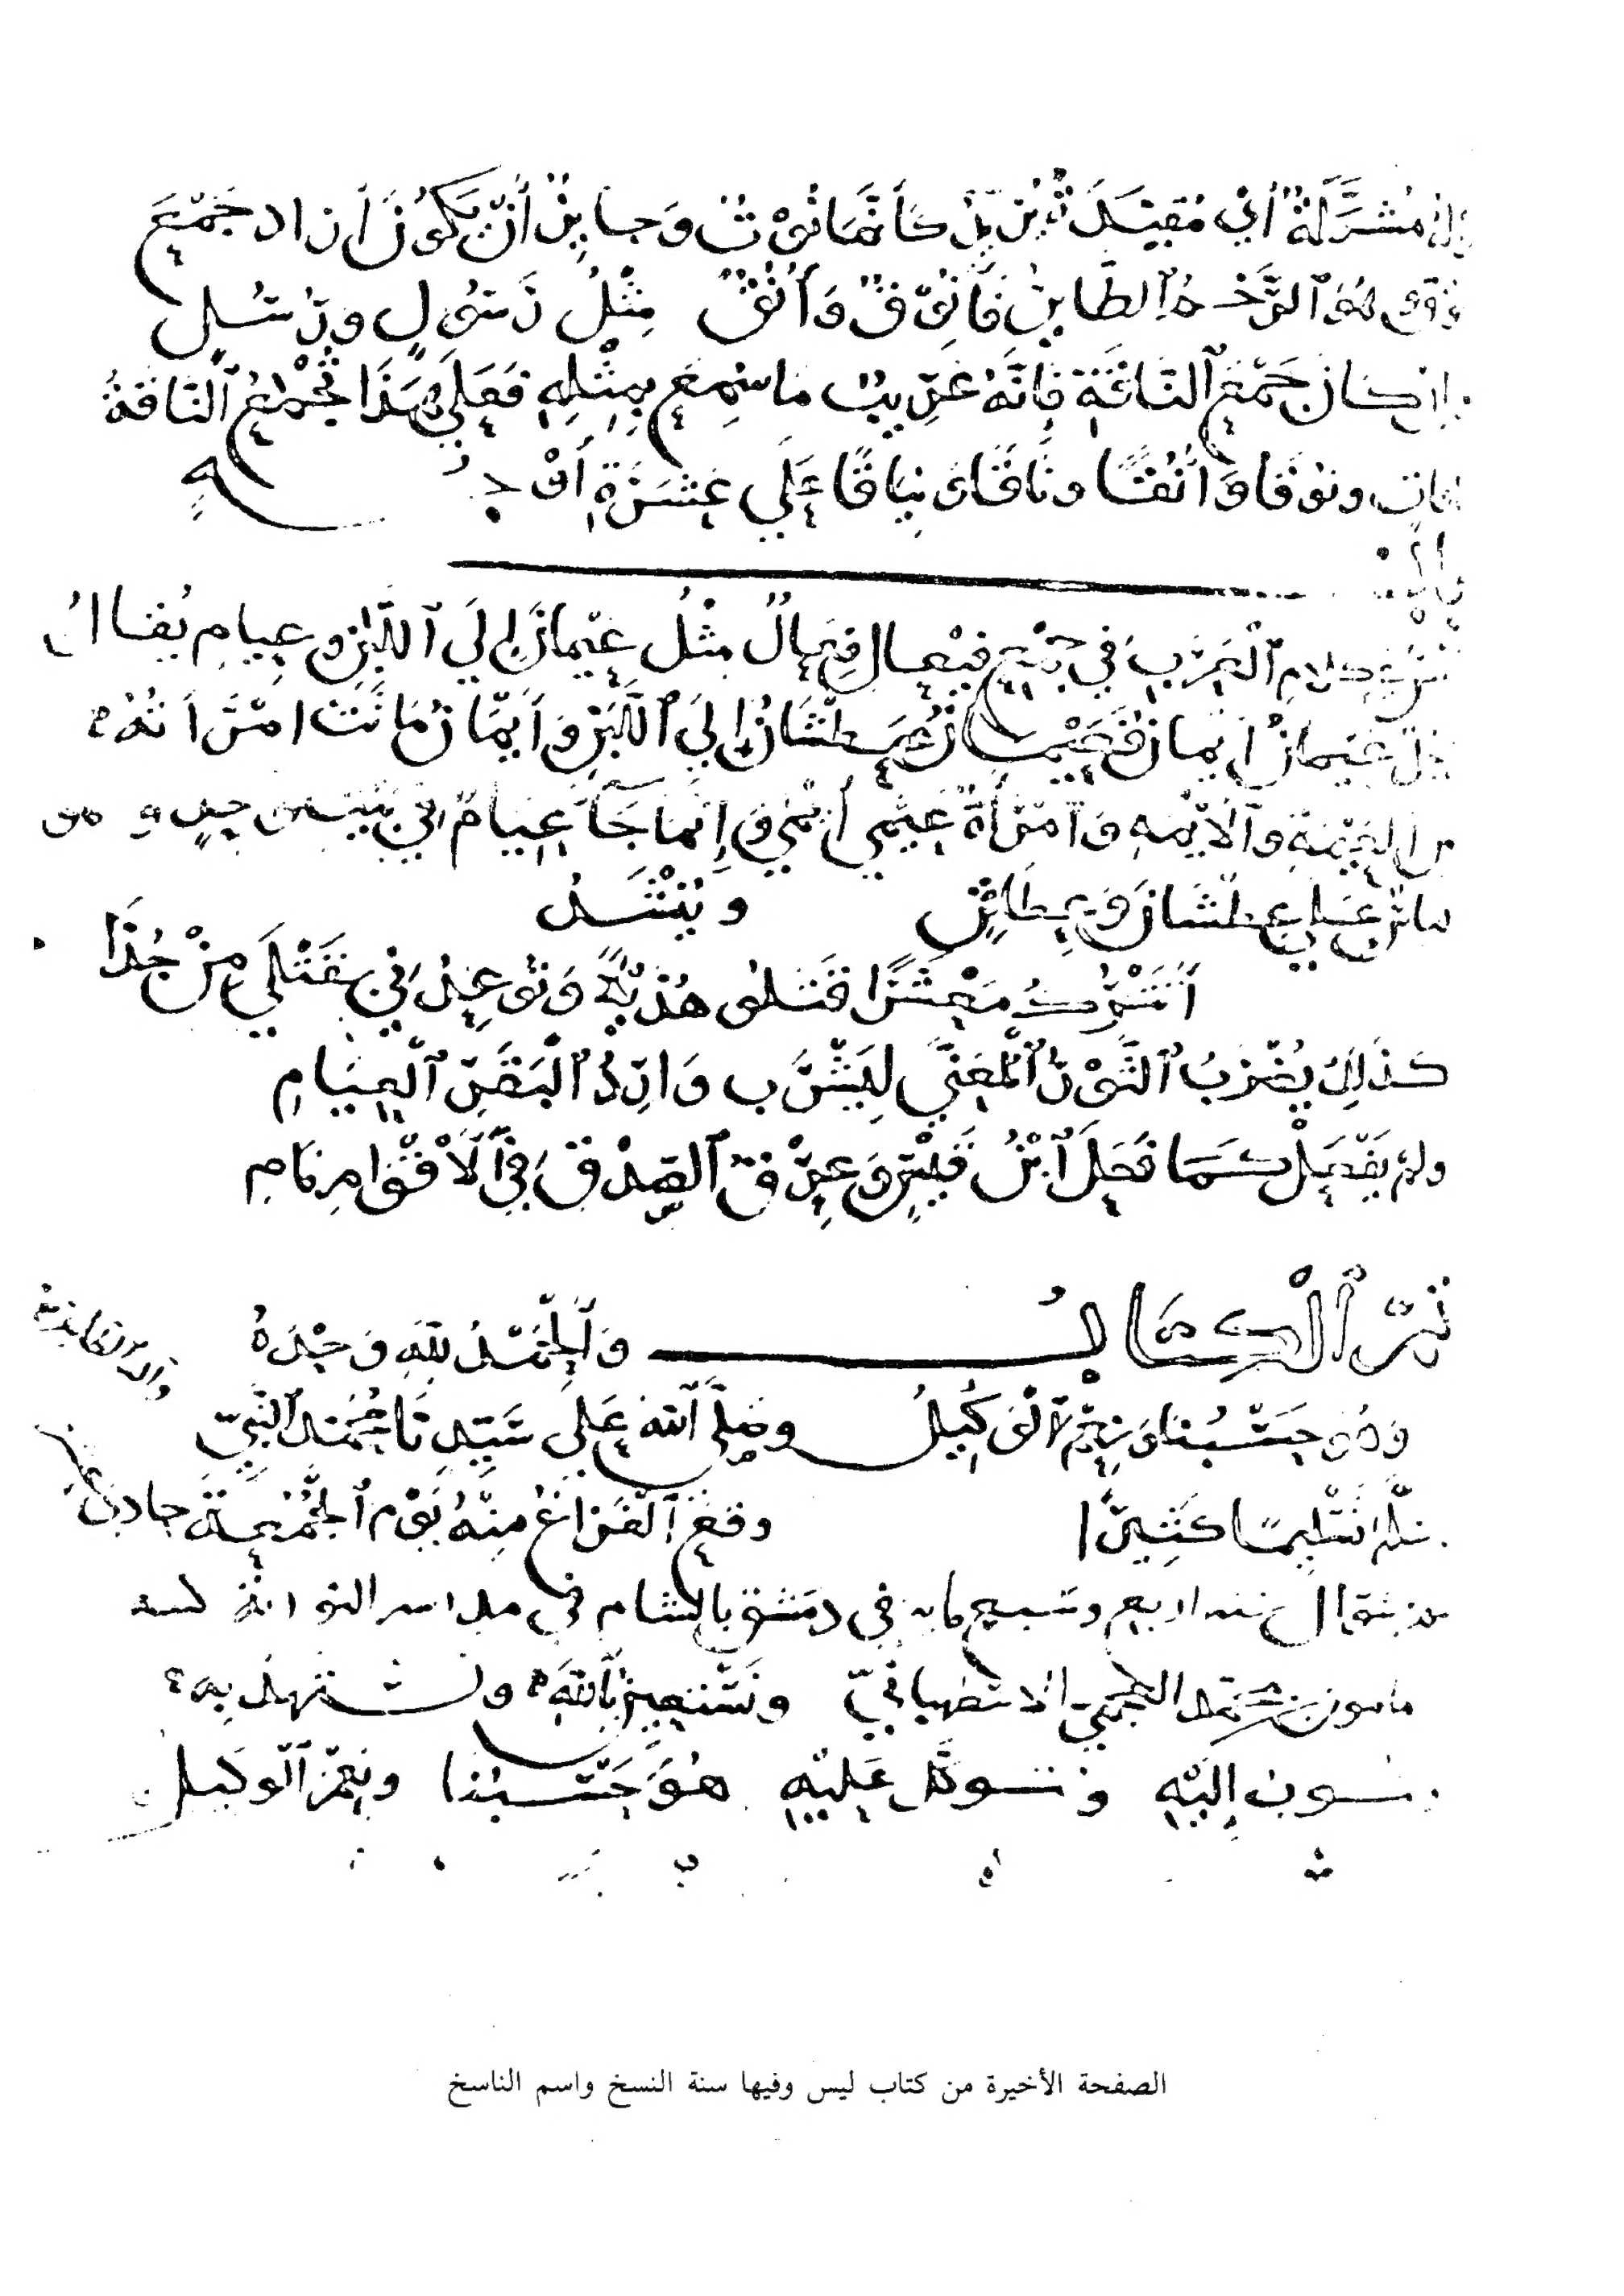 مُشَرَّلَةٌ أَيْ مُقَيَّدَةٌ كَأَنَّهَا نُوْقٌ وَجَايِزٌ أَنْ يَكُوْنَ أَرَادَ جَمْعَ
هُوَ الرَّخَمُ الطَّايِرُ فَأَنُوْقٌ وَأُنُقٌ مِثْلُ رَسُوْلٍ وَرُسُلٍ
وَإِنْ كَانَ جَمْعَ النَّاقَةِ فَإِنَّهُ غَرِيبٌ مَا سُمِعَ بِمِثْلِهِ فَعَلَى هَذَا تُجْمَعُ النَّاقَةُ
وَنُوْقًا وَأَنُقًا وَنَاقًا وَنِيَاقًا عَلَى عَشَرَةِ أَوْجُهٍ
كَلَامِ الْعَرَبِ فِي جَمْعِ فَيْعَالٍ فِيعَالٌ مِثْلُ عَيْمَانَ إِلَى اللَّبَنِ وَعِيَامٍ يُقَالُ
رَجُلٌ عَيْمَانُ أَيْمَانُ فَعَيْمَانُ عَطْشَانُ إِلَى اللَّبَنِ وَأَيْمَانُ مَاتَتْ امْرَأَتُهُ
الْعَيْمَةِ وَالْأَيْمَةِ وَامْرَأَةٌ عَيْمَى أَيْمَى وَإِنَّمَا جَاءَ عِيَامٌ فِي بَيْتٍ
عَلَى عَطْشَانَ وَعِطَاشٍ وَيُنْشَدُ
أَتَتْرُكُ مَعْشَرًا قَتَلُوا هُذَيْلًا وَتُوْعِدُنِي بِقَتْلَى مِنْ جُذَامِ
كَذَلِكَ يُضْرَبُ الثَّوْرُ الْمُعَنَّى لِيَشْرَبَ وَارِدُ الْبَقَرِ الْعِيَامِ
وَلَمْ يَفْعَلْ كَمَا فَعَلَ ابْنُ قَيْسٍ وَعِرْقُ الصِّدْقِ فِي الْأَقْوَامِ نَامِ
تَمَّ الْكِتَابُ وَالْحَمْدُ لِلَّهِ وَحْدَهُ
وَهُوَ حَسْبُنَا وَنِعْمَ الْوَكِيلُ وَصَلَّى اللَّهُ عَلَى سَيِّدِنَا مُحَمَّدٍ النَّبِيِّ
وَسَلَّمَ تَسْلِيمًا كَثِيرًا وَقَعَ الْفَرَاغُ مِنْهُ يَوْمَ الْجُمُعَةِ
شوال سنة اربع وسبع مايه في دمشق بالشام في
مامون بن محمد العجمي الاصطهباني وَنَسْتَعِينُ بِاللَّهِ وَنَسْتَهْدِيهِ
وَنَتُوبُ إِلَيْهِ وَنَتَوَكَّلُ عَلَيْهِ هُوَ حَسْبُنَا وَنِعْمَ الْوَكِيلُ
الصفحة الأخيرة من كتاب ليس وفيها سنة النسخ واسم الناسخ